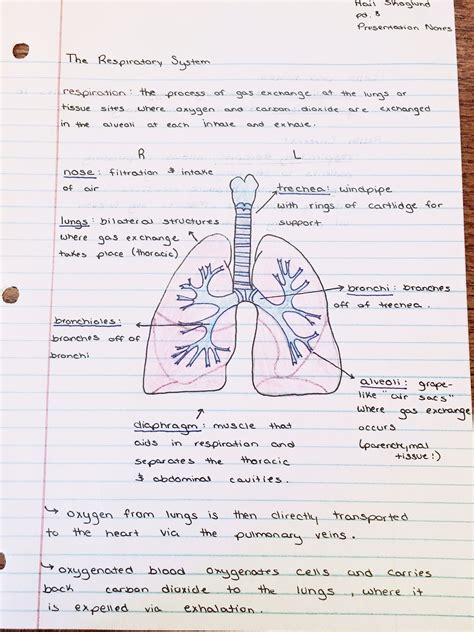 Hali Skoglund
pd. 8
Presentation Notes
The Respiratory System
respiration: the process of gas exchange at the lungs or
tissue sites where oxygen and carbon dioxide are exchanged
in the alveoli at each inhale and exhale.
R
L
nose: filtration & intake
of air
trechea: windpipe
with rings of cartlidge for
support
lungs: bilateral structures
where gas exchange
takes place (thoracic)
bronchi: branches
off of trechea.
bronchioles:
branches off of
bronchi
alveoli: grape-
like "air sacs"
where gas exchange
occurs
(parenchymal
tissue!)
diaphragm: muscle that
aids in respiration and
separates the thoracic
& abdominal cavities.
↳ oxygen from lungs is then directly transported
to the heart via the pulmonary veins.
↳ oxygenated blood oxygenates cells and carries
back carbon dioxide to the lungs, where it
is expelled via exhalation.